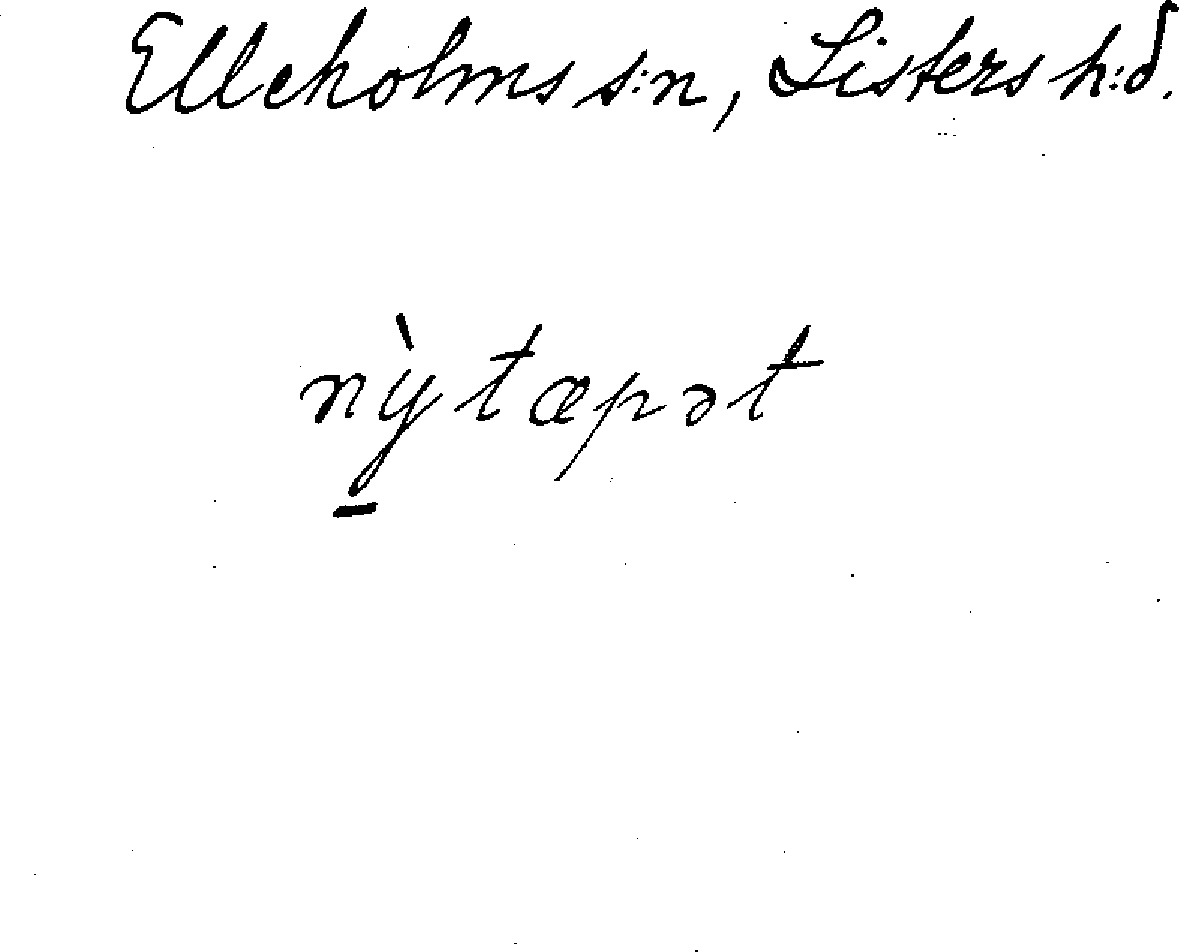 Elleholms s:n, Listers h:d.
nỳ̱tæpət